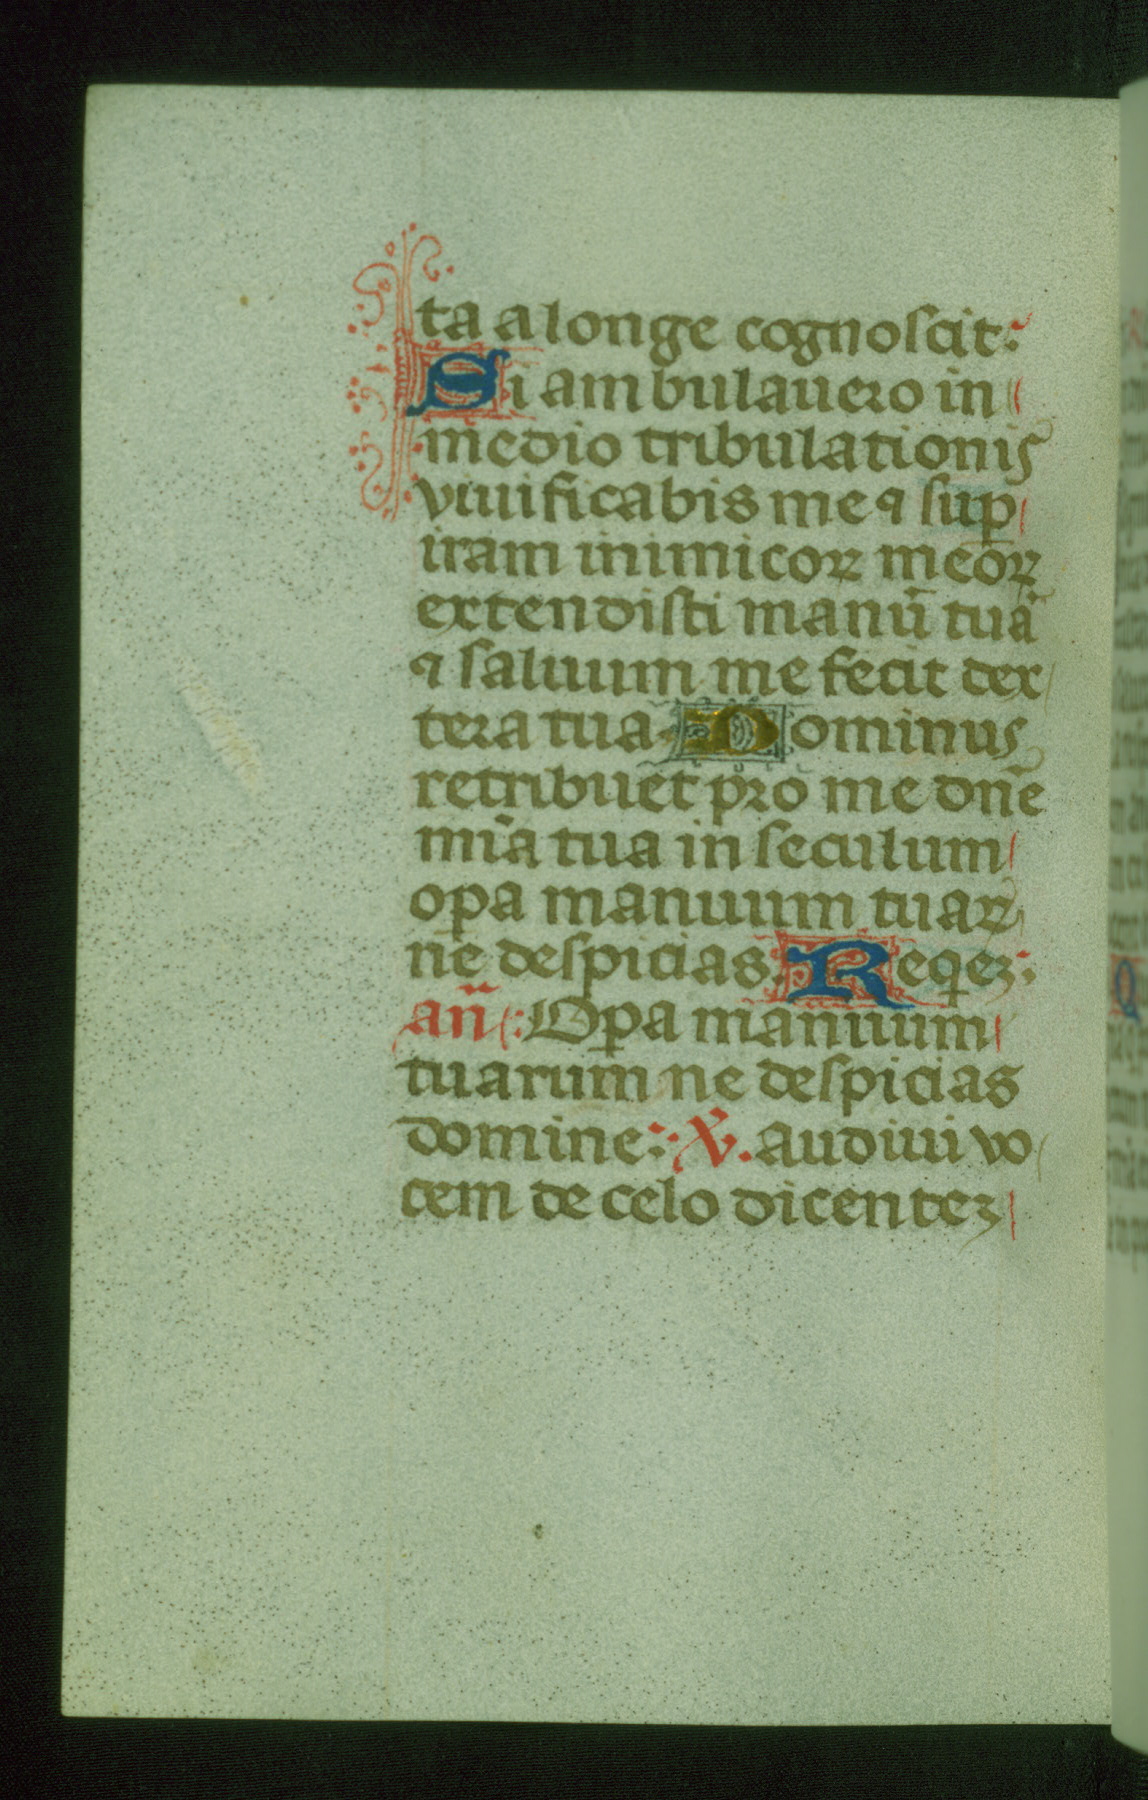 ta a longe cognoscit:
Si ambulauero in
medio tribulationis
viuificabis me ⁊ suꝑ
iram inimicoꝝ meoꝝ
extendisti manū tuā
⁊ saluum me fecit dex
tera tua Dominus
retribuet pro me dn̄e
mīa tua in seculum
oꝑa manuum tuaꝝ
ne despicias Reqꝫ:
an̄: Oꝑa manuum
tuarum ne despicias
domine: V. audiui vo
cem de celo dicenteꝫ